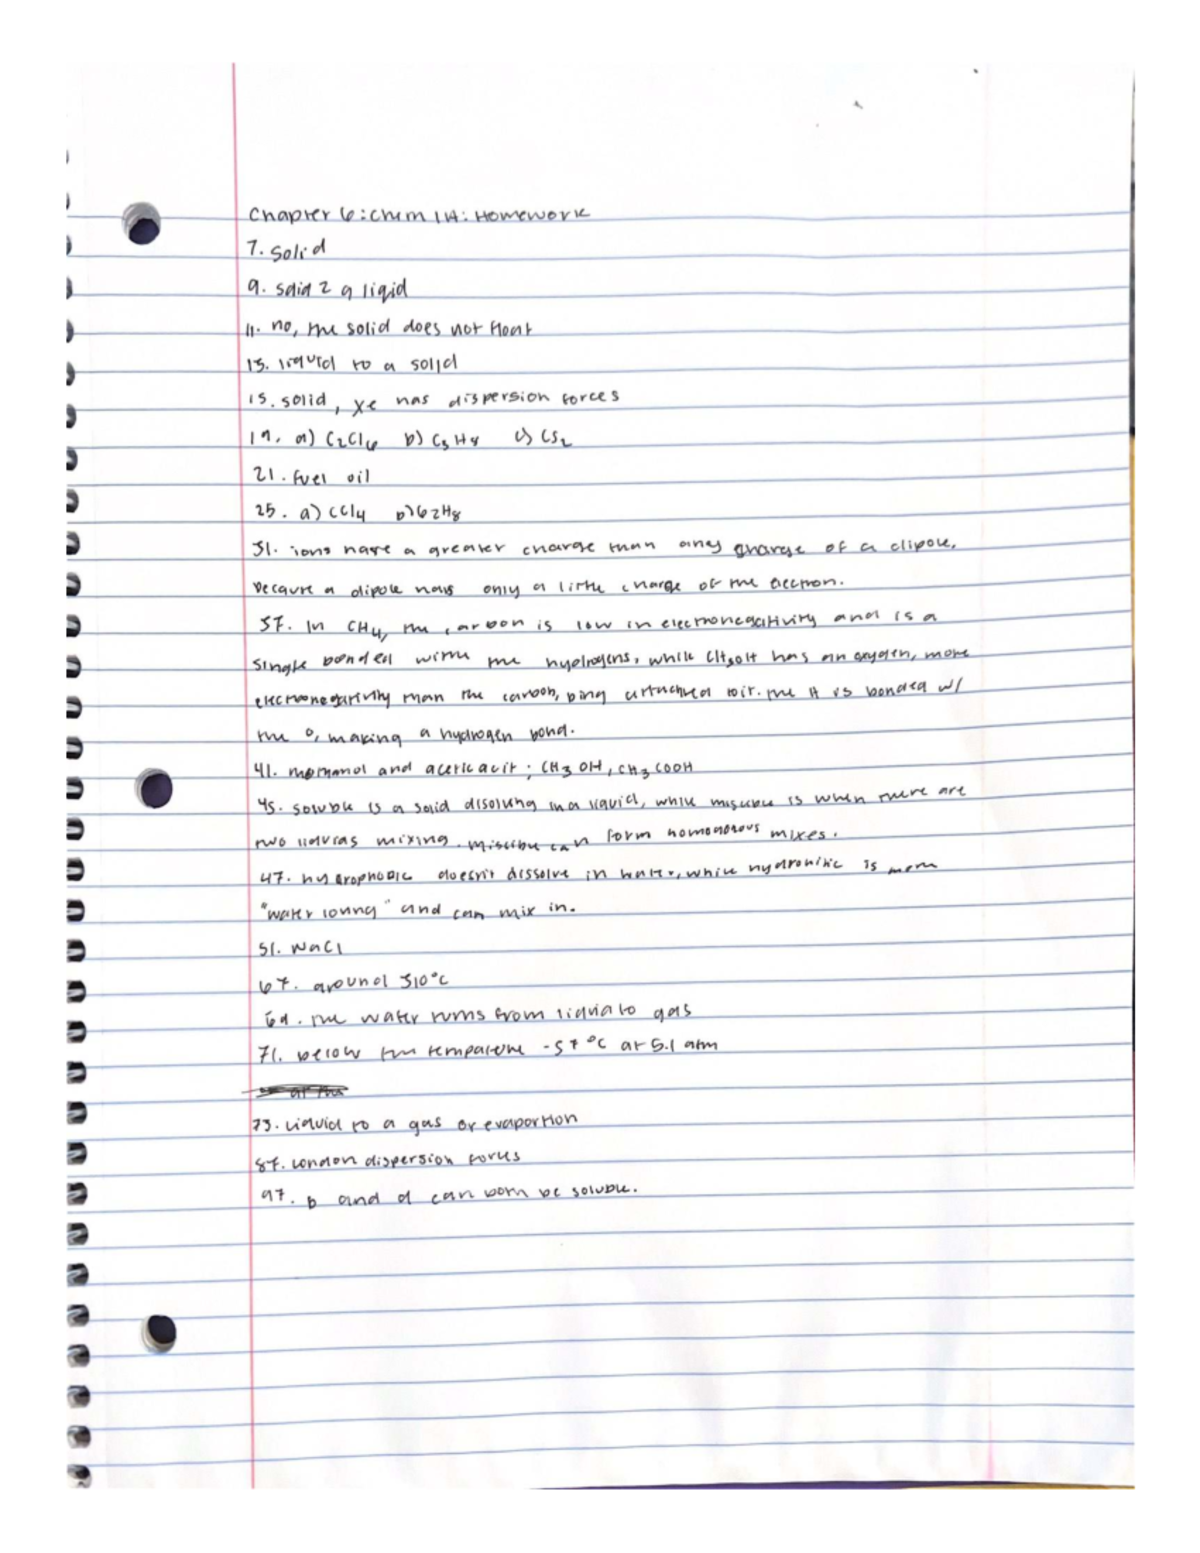 Chapter 6: Chem 1A: Homework
7. Solid
9. solid 2 a liqid
11. no, the solid does not float
13. liquid to a solid
15. solid, Xe has dispersion forces
19. a) C2Cl6 b) C3H8 c) CS2
21. fuel oil
25. a) CCl4 b) C2H8
31. ions have a greater charge than any charge of a dipole,
because a dipole has only a little charge of the electron.
37. In CH4, the carbon is low in electronegativity and is a
single bonded with the hydrogens, while CH3OH has an oxygen, more
electronegativity than the carbon, bing attached to it. the H is bonded w/
the O, making a hydrogen bond.
41. methanol and acetic acid; CH3OH, CH3COOH
45. soluble is a solid disolving in a liquid, while miscible is when there are
two liquids mixing. miscible can form homogorous mixes.
47. hydrophobic doesn't dissolve in water, while hydrophilic is more
"water loving" and can mix in.
51. NaCl
67. around 310°C
69. the water turns from liquid to gas
71. below the temperature -57°C at 5.1 atm
73. Liquid to a gas or evaportion
87. London dispersion forces
97. b and d can both be soluble.